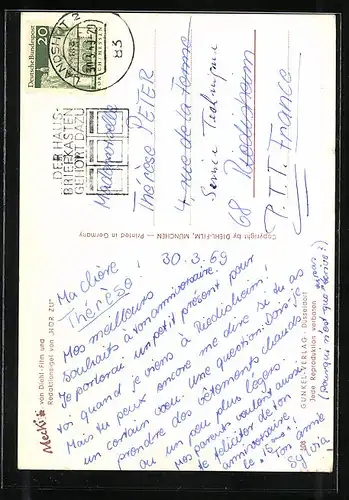 30.3.69
Ma chère
Thérèse!
Mes meilleurs
souhaits à ton anniversaire.
Je porterai un petit présent pour
toi quand je viens à Riedisheim!
Mais tu peux encore me dire si tu as
un certain vœu. Une question: Dois-je
prendre des vêtements chauds
ou un peu plus légers
Mes parents veulent aussi
te féliciter de ton
anniversaire
le 15ème!
ton amie
Silvia
(pourquoi n'est que
Mecki
von Diehl-Film und
Redaktionsigel von „HÖR ZU"
308
GUNKEL-VERLAG · Düsseldorf
Jede Reproduktion verboten
Copyright by DIEHL-FILM, MÜNCHEN — Printed in Germany
Deutsche Bundespost
20
LORSCH/HESSEN
LANDSHUT 2
83
DER HAUS-
BRIEFKASTEN
GEHÖRT DAZU
Mademoiselle
Thérèse PETER
4, rue de la
Service Technique
68 Riedisheim
P.T.T. France